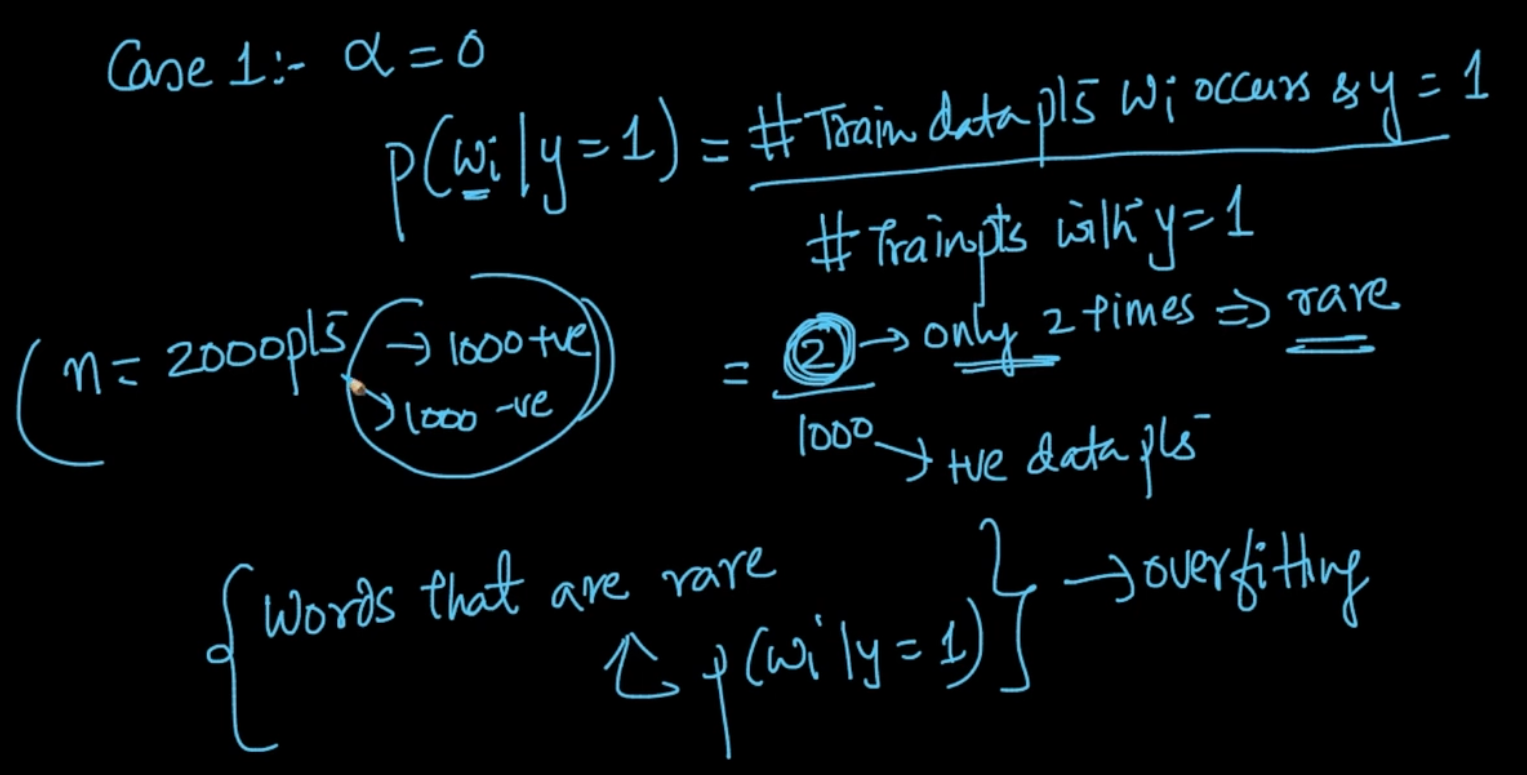 Case 1:- α = 0
p(wi | y = 1) = # Train data pts wi occurs & y = 1
# Train pts with y = 1
(n = 2000 pts → 1000 +ve
→ 1000 -ve
= 2 → only 2 times ⇒ rare
1000 → +ve data pts
{ Words that are rare } → overfitting
p(wi | y = 1)